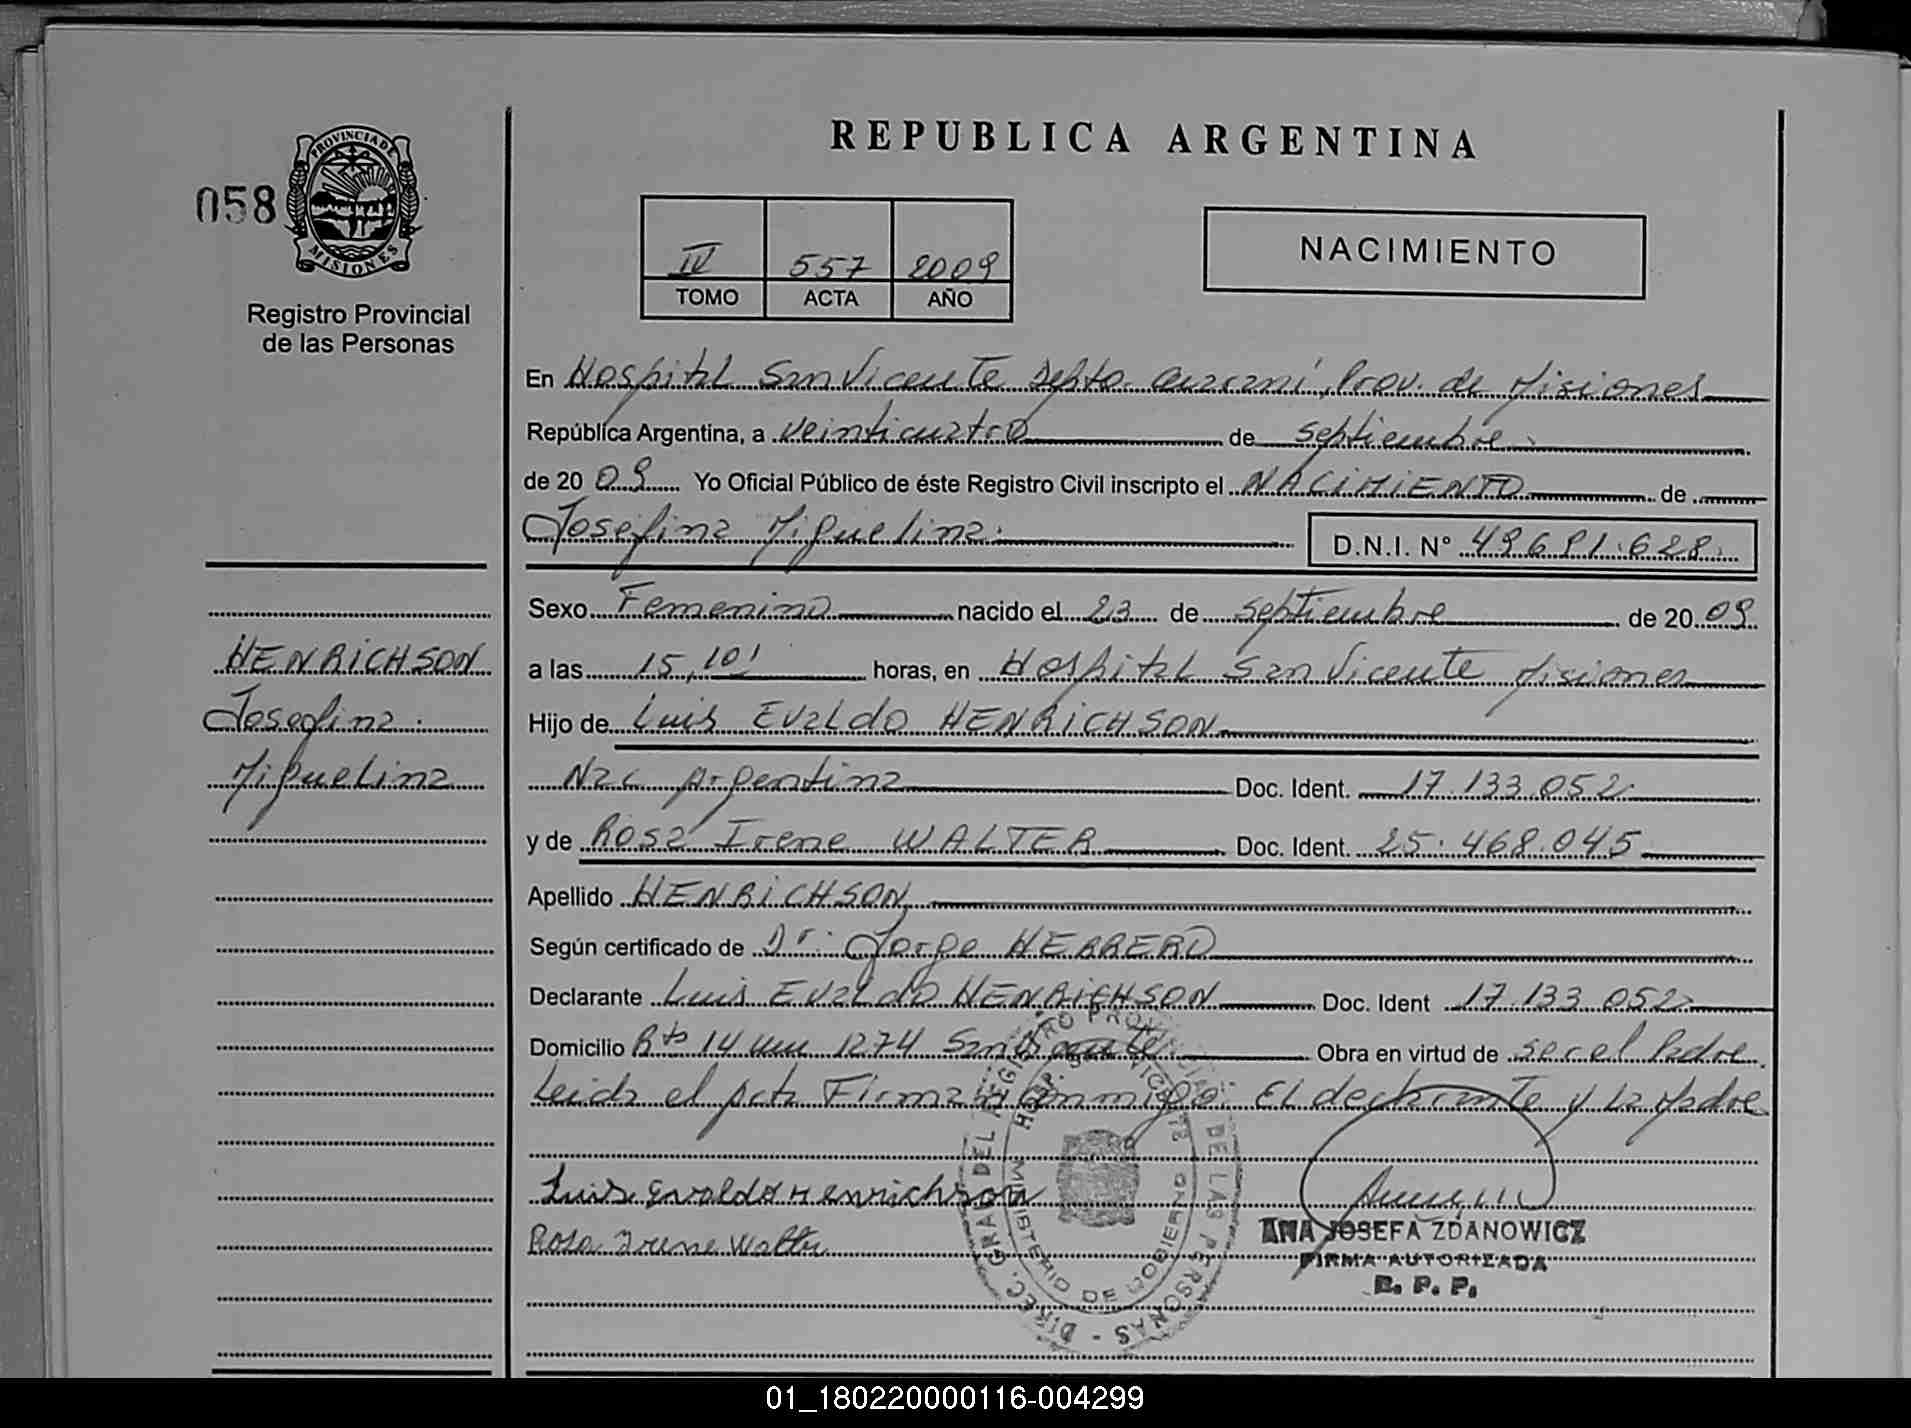 REPUBLICA ARGENTINA
058
PROVINCIA DE
MISIONES
Registro Provincial
de las Personas
IV 557 2009
TOMO ACTA AÑO
NACIMIENTO
En Hospital San Vicente Depto. Guaraní, Prov. de Misiones
República Argentina, a veinticuatro de septiembre
de 20 09 Yo Oficial Público de éste Registro Civil inscripto el NACIMIENTO de
Josefina Miguelina
D.N.I. N° 49.691.628
Sexo Femenino nacido el 23 de septiembre de 20 09
HENRICHSON
Josefina
Miguelina
a las 15,10' horas, en Hospital San Vicente Misiones
Hijo de Luis Evaldo HENRICHSON
Nac Argentina Doc. Ident. 17.133.052
y de Rosa Irene WALTER Doc. Ident. 25.468.045
Apellido HENRICHSON
Según certificado de Dr. Jorge HERRERO
Declarante Luis Evaldo HENRICHSON Doc. Ident 17.133.052
Domicilio Rta 14 km 1274 San Vicente Obra en virtud de ser el Padre
Leida el acta Firman Conmigo: El declarante y La Madre
Luis Evaldo Henrichson
Rosa Irene Walter
DIREC. GRAL. DEL REGISTRO PROVINCIAL DE LAS PERSONAS -
HOSP. SAN VICENTE
MINISTERIO DE GOBIERNO
ANA JOSEFA ZDANOWICZ
FIRMA AUTORIZADA
R. P. P.
01_180220000116-004299